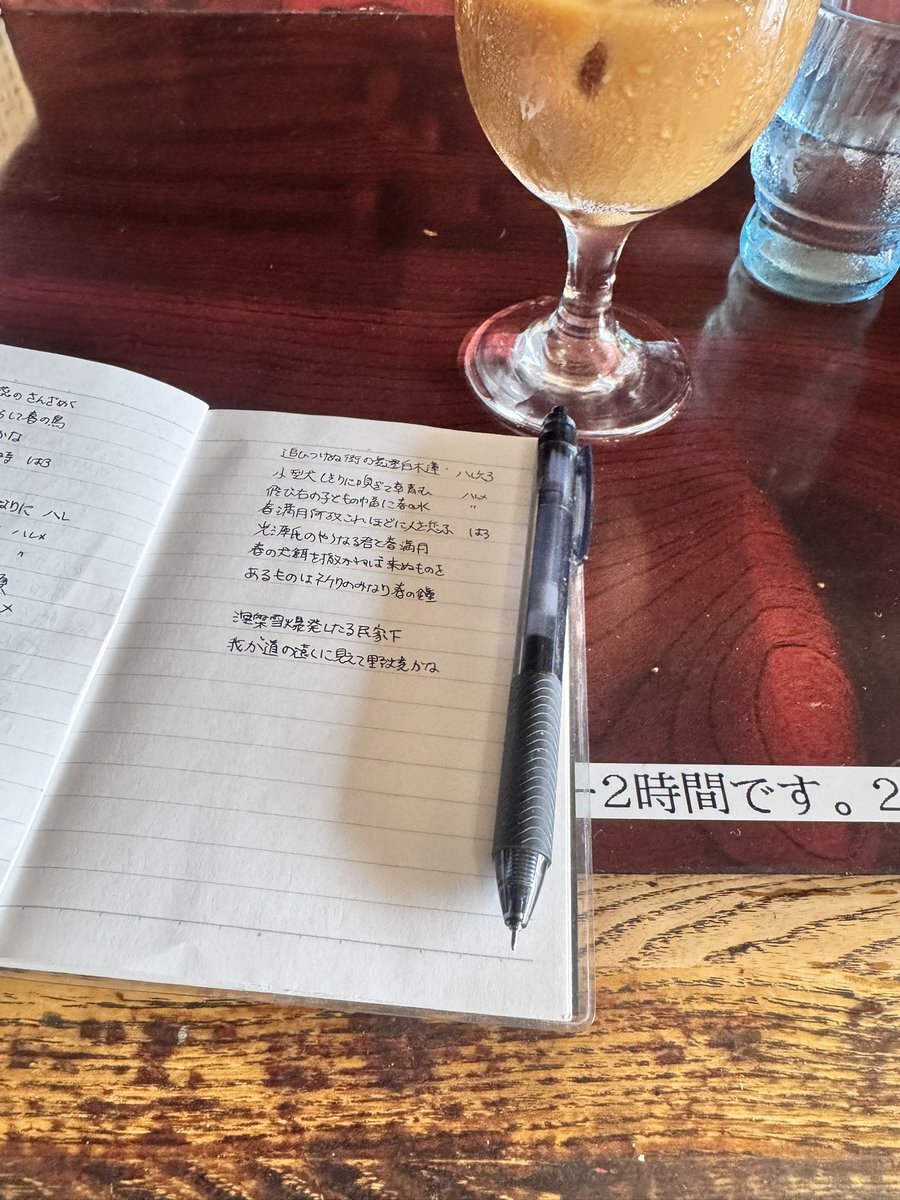 のさんざめく
して春の鳥
かな
は3
なりに ハレ
ハレメ
〃
追ひつけぬ街の 白木蓮
小型犬しきりに嗅ぎて草青む ハレメ
の子どもの中には春の水 〃
春満月何故これほどに人を恋ふ は3
光源氏のやうなる君と春満月
春の犬餌を撒かねば来ぬものを
あるものは祈りのみなり春の鐘
涅槃雪爆発したる民家下
我が道の遠くに見えて野焼かな
2時間です。2